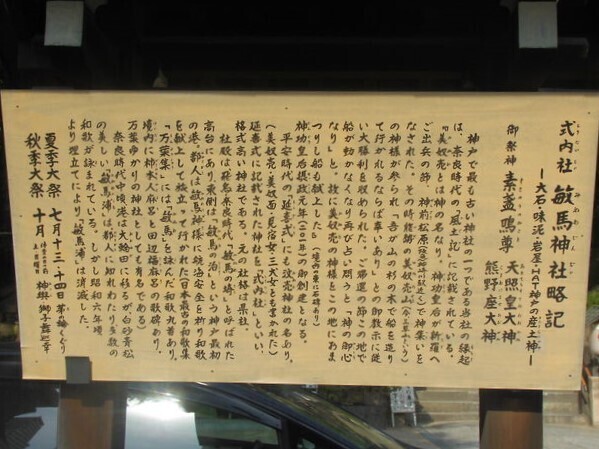 式内社 敏馬神社略記
―大石・味泥・岩屋・HAT神戸の産土神―
御祭神 素盞鳴尊 天照皇大神 熊野座大神
神戸で最も古い神社の一つである当社の縁起
は、奈良時代の『風土記』に記載されている。
『美奴売とは神の名なり。神功皇后が新羅へ
ご出兵の節、神前松原に神集いを
なされた。その時能勢の美奴売山
の神様が参られ「吾が山の杉の木で船を造り
て行かれるならば幸いあり」との御教示に従
い大勝利を収められた。ご帰還の節この地で
船が動かなくなり再び占い問うと「神の御心
なり」と。故に美奴売の神様をこの地にまつ
つりし船も献上した』(境内の東に石碑あり)
神功皇后摂政元年(二〇一年)の御創建となる。
平安時代の『延喜式』にも汶売神社の名あり。
(美奴売・美面・見宿女・三犬女とも書かれた)
延喜式に記載された神社を「式内社」といい、
格式高い神社である。元の社格は県社。
社殿は飛鳥奈良時代、「敏馬の埼」と呼ばれた
高台にあり、東側は「敏馬の泊」という神戸最初
の港。都人は敏馬神様に航海安全を祈り和歌
を献上して旅立って行かれた。日本最古の和歌集
『万葉集』には「敏馬」を詠んだ和歌九首あり。
境内に柿本人麻呂と田辺福麻呂の歌碑あり。
万葉ゆかりの神社としても有名である。
奈良時代中頃港は大輪田に移るが白砂青松
の美しい「敏馬浦」は都人に知れわたり多数の
和歌が詠まれている。しかし昭和六年頃
より埋立てにより「敏馬浦」は消滅した。
夏季大祭 七月十三・十四日 茅の輪くぐり
秋季大祭 十月 土・日曜日 神輿・獅子舞巡幸